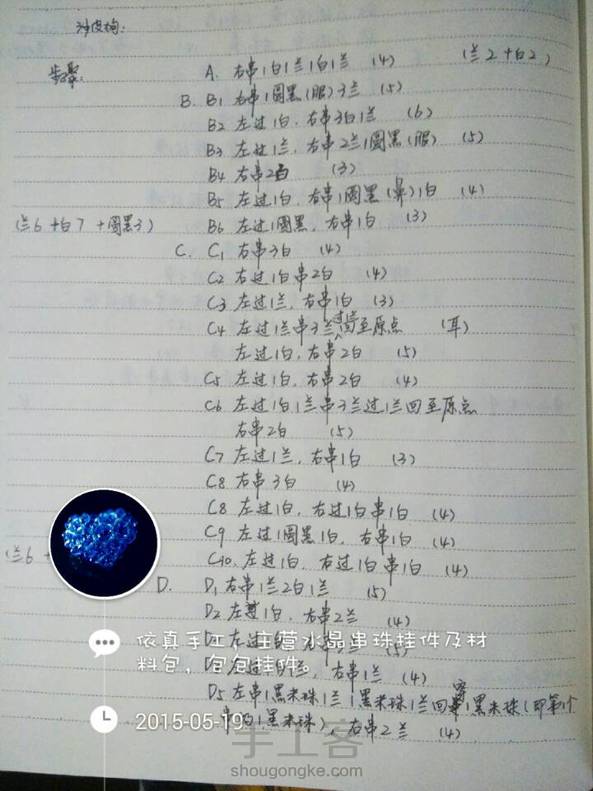 沙皮狗:
步聚:
A. 右串1白1兰1白1兰 (4) (兰2+白2)
B. B1 右串1圆黑(眼)3兰 (5)
B2 左过1白,右串3白1兰 (6)
B3 左过1兰,右串2兰1圆黑(眼) (5)
B4 右串2白 (3)
B5 左过1白,右串1圆黑(鼻)1白 (4)
(兰6+白7+圆黑3) B6 左过1圆黑,右串1白 (3)
C. C1 右串3白 (4)
C2 右过1白串2白 (4)
C3 左过1兰,右串1白 (3)
C4 左过1兰串3兰过1兰回至原点 (耳)
左过1白,右串2白 (5)
C5 左过1白,右串2白 (4)
C6 左过1白1兰串3兰过1兰回至原点
右串2白 (5)
C7 左过1兰,右串1白 (3)
C8 右串3白 (4)
C8 左过1白,右过1白串1白 (4)
C9 左过1圆黑1白,右串1白 (4)
(兰6+ C10 左过1白,右过1白串1白 (4)
D. D1 右串1兰2白1兰 (5)
D2 左1白,右串2兰 (4)
左过 (5)
依真手工,主营水晶串珠挂件及材
料包,包包挂件。
左过1兰,右串1兰 (4)
D5 左串1黑米珠1兰1黑米珠1兰回穿1黑米珠(即第1个
串的1黑米珠),右串2兰 (4)
2015-05-19
手工客
shougongke.com